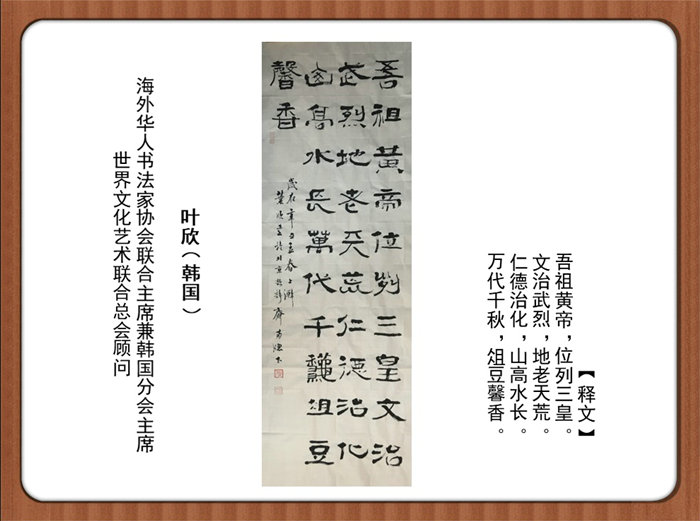 【释文】
吾祖黄帝，位列三皇。
文治武烈，地老天荒。
仁德治化，山高水长。
万代千秋，俎豆馨香。
吾祖黃帝位列三皇文治
武烈地老天荒仁德治化
山高水長萬代千龝俎豆
馨香
歲在辛丑孟春上澣
叶欣（韩国）
海外华人书法家协会联合主席兼韩国分会主席
世界文化艺术联合总会顾问